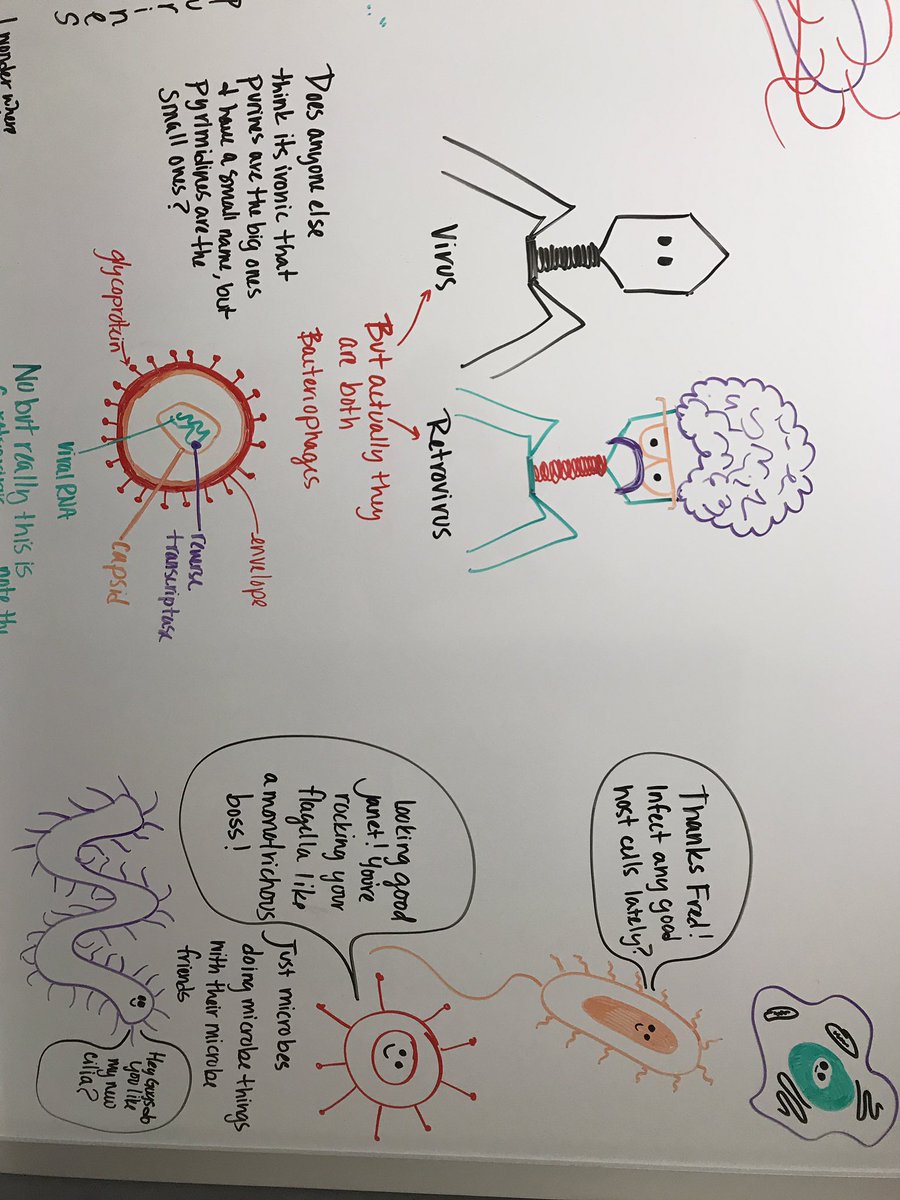 Virus
Retrovirus
But actually they
are both
Bacteriophages
Does anyone else
think its ironic that
purines are the big ones
& have a small name, but
pyrimidines are the
small ones?
glycoprotein
envelope
reverse
transcriptase
capsid
viral RNA
No but really this is
I wonder where
Thanks Fred!
Infect any good
host cells lately?
looking good
Janet! You're
rocking your
flagella like
a monotrichous
boss!
Just microbes
doing microbe things
with their microbe
friends
Hey guys do
you like
my new
cilia?